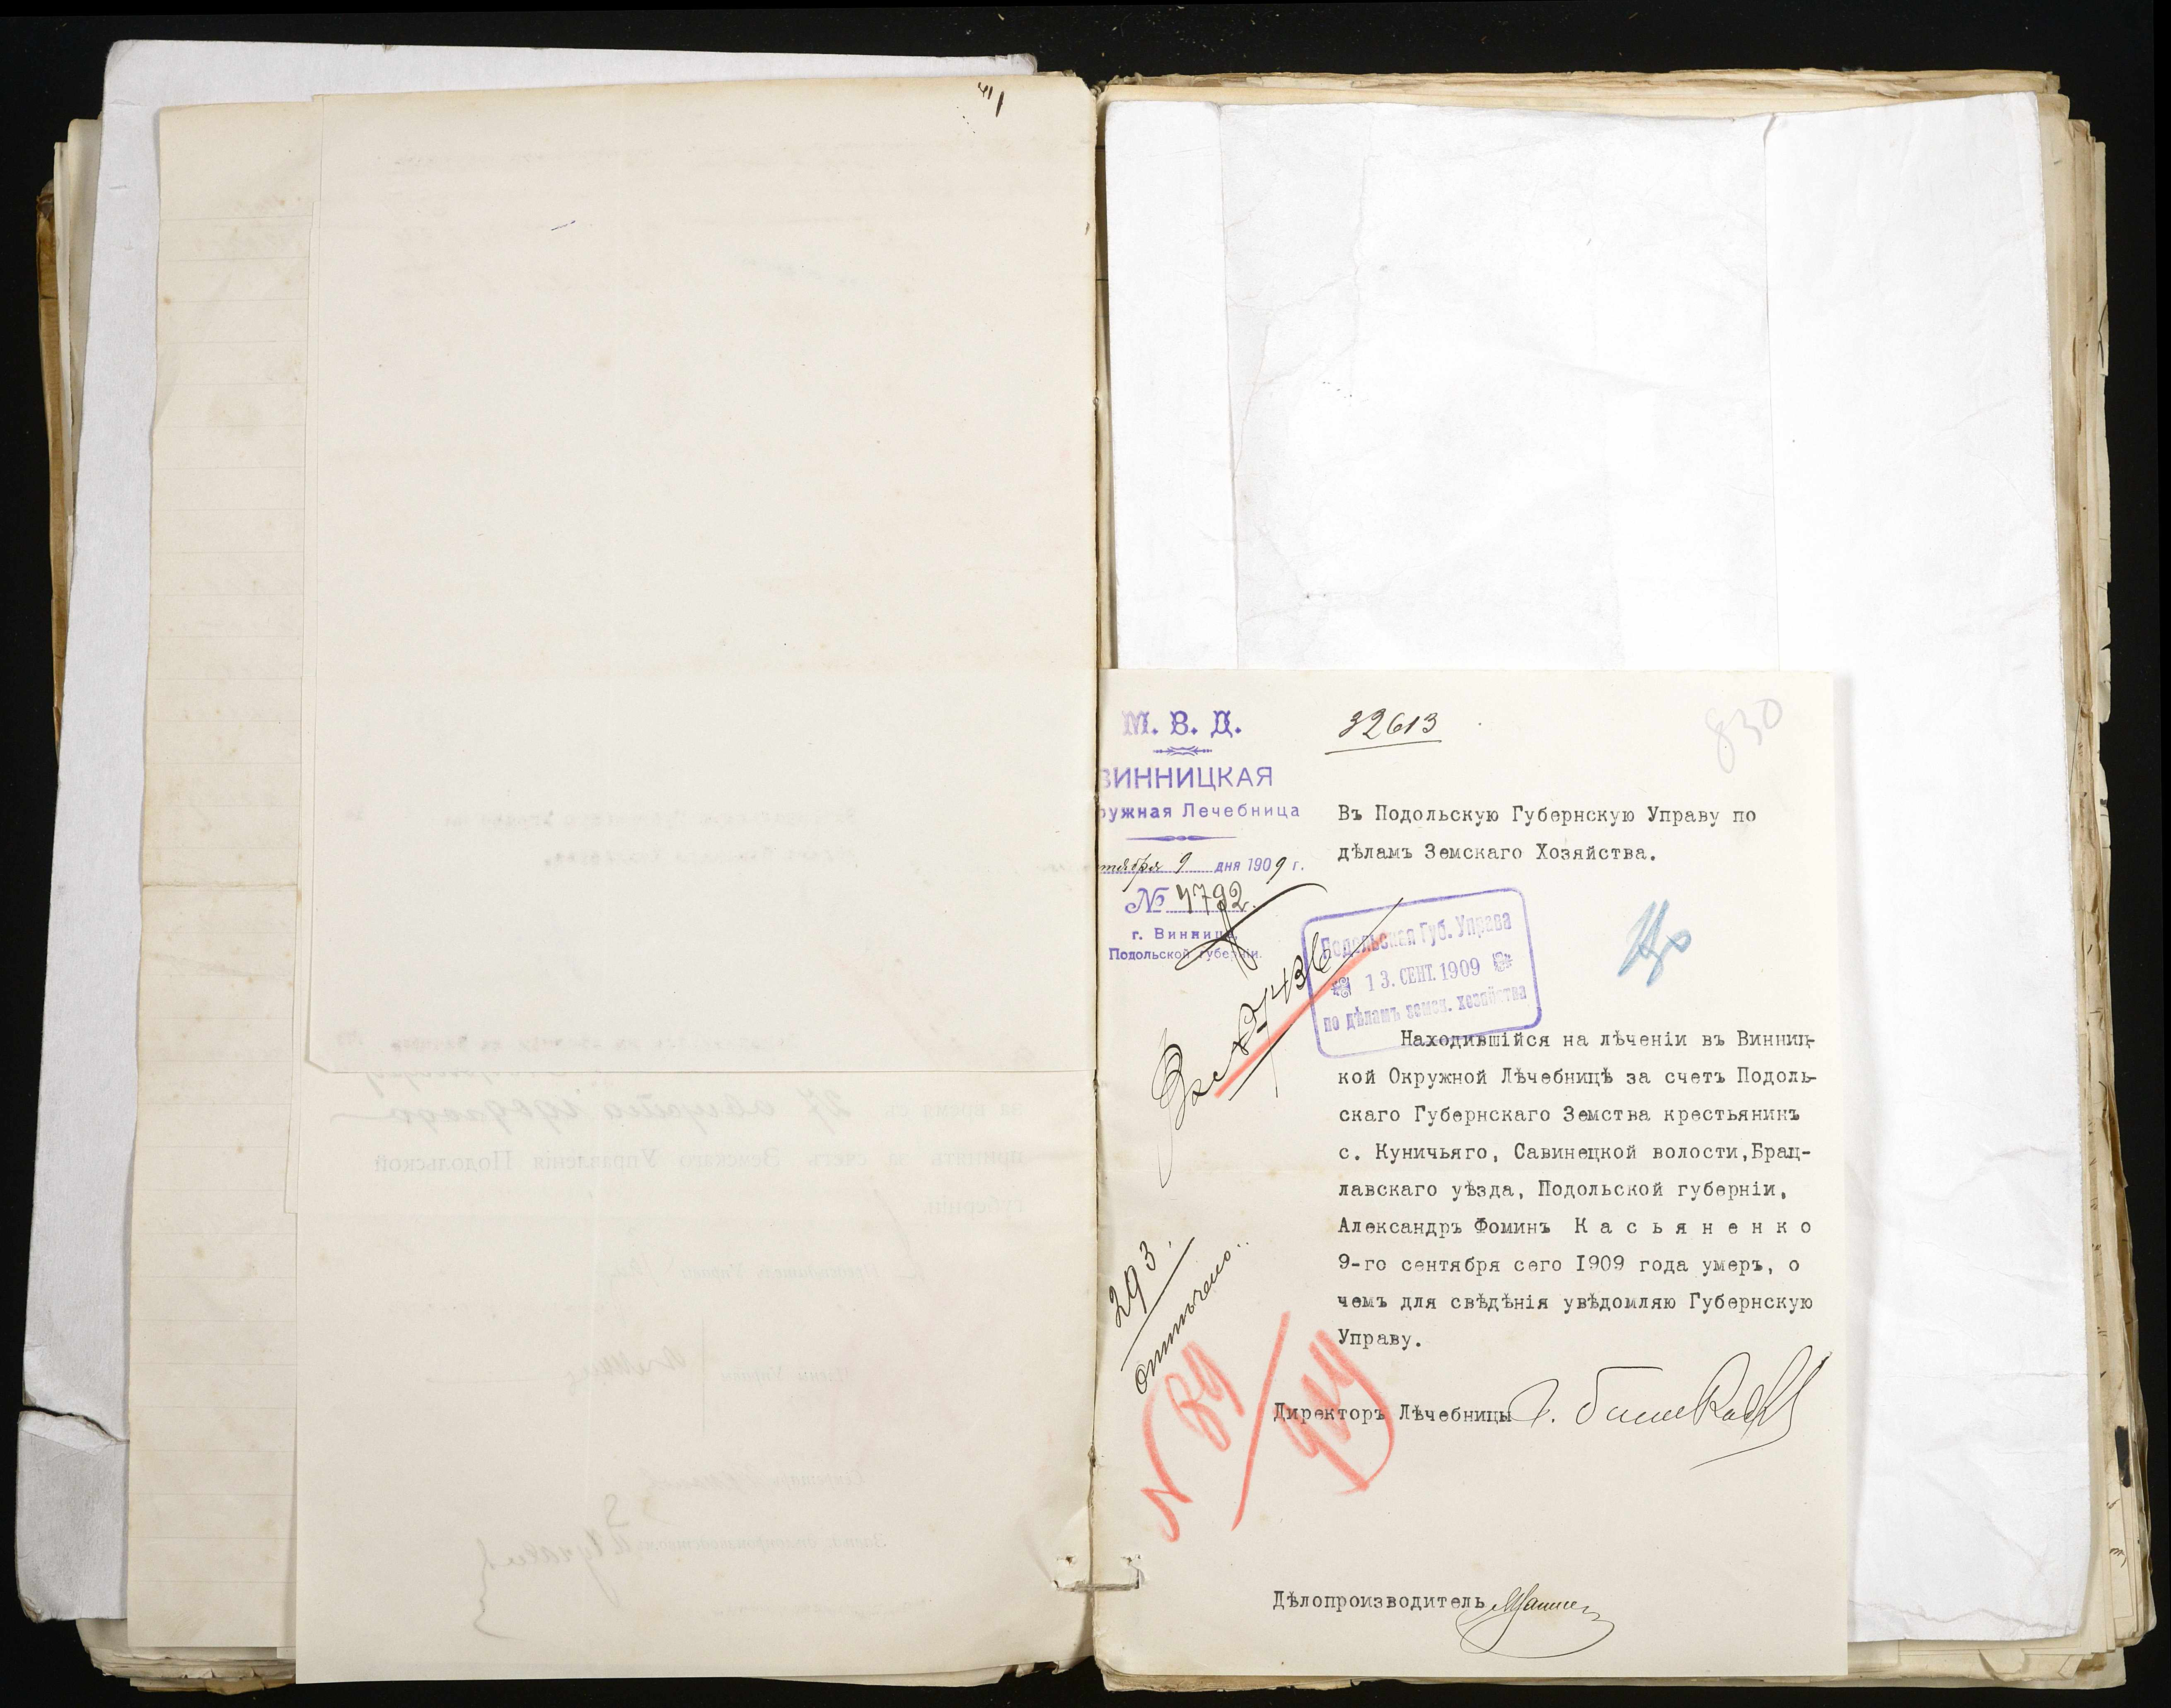 М. В. Д.
ВИННИЦКАЯ
ружная Лечебница
тября 9 дня 1909 г.
№ 4792.
г. Винница,
Подольской губерніи.
32613
830
Въ Подольскую Губернскую Управу по
дѣламъ Земскаго Хозяйства.
Подольская Губ. Управа
13. СЕНТ. 1909
по дѣламъ земск. хозяйства
Находившійся на лѣченіи въ Винниц-
кой Окружной Лѣчебницѣ за счетъ Подоль-
скаго Губернскаго Земства крестьянинъ
с. Куничьяго, Савинецкой волости, Брац-
лавскаго уѣзда, Подольской губерніи,
Александръ Фоминъ Касьяненко
9-го сентября сего 1909 года умеръ, о
чемъ для свѣдѣнія увѣдомляю Губернскую
Управу.
293.
Отмѣчено.
Директоръ Лѣчебницы
Дѣлопроизводитель
за время съ 27 августа 1909 года
принять за счетъ Земскаго Управленія Подольской
губерніи.